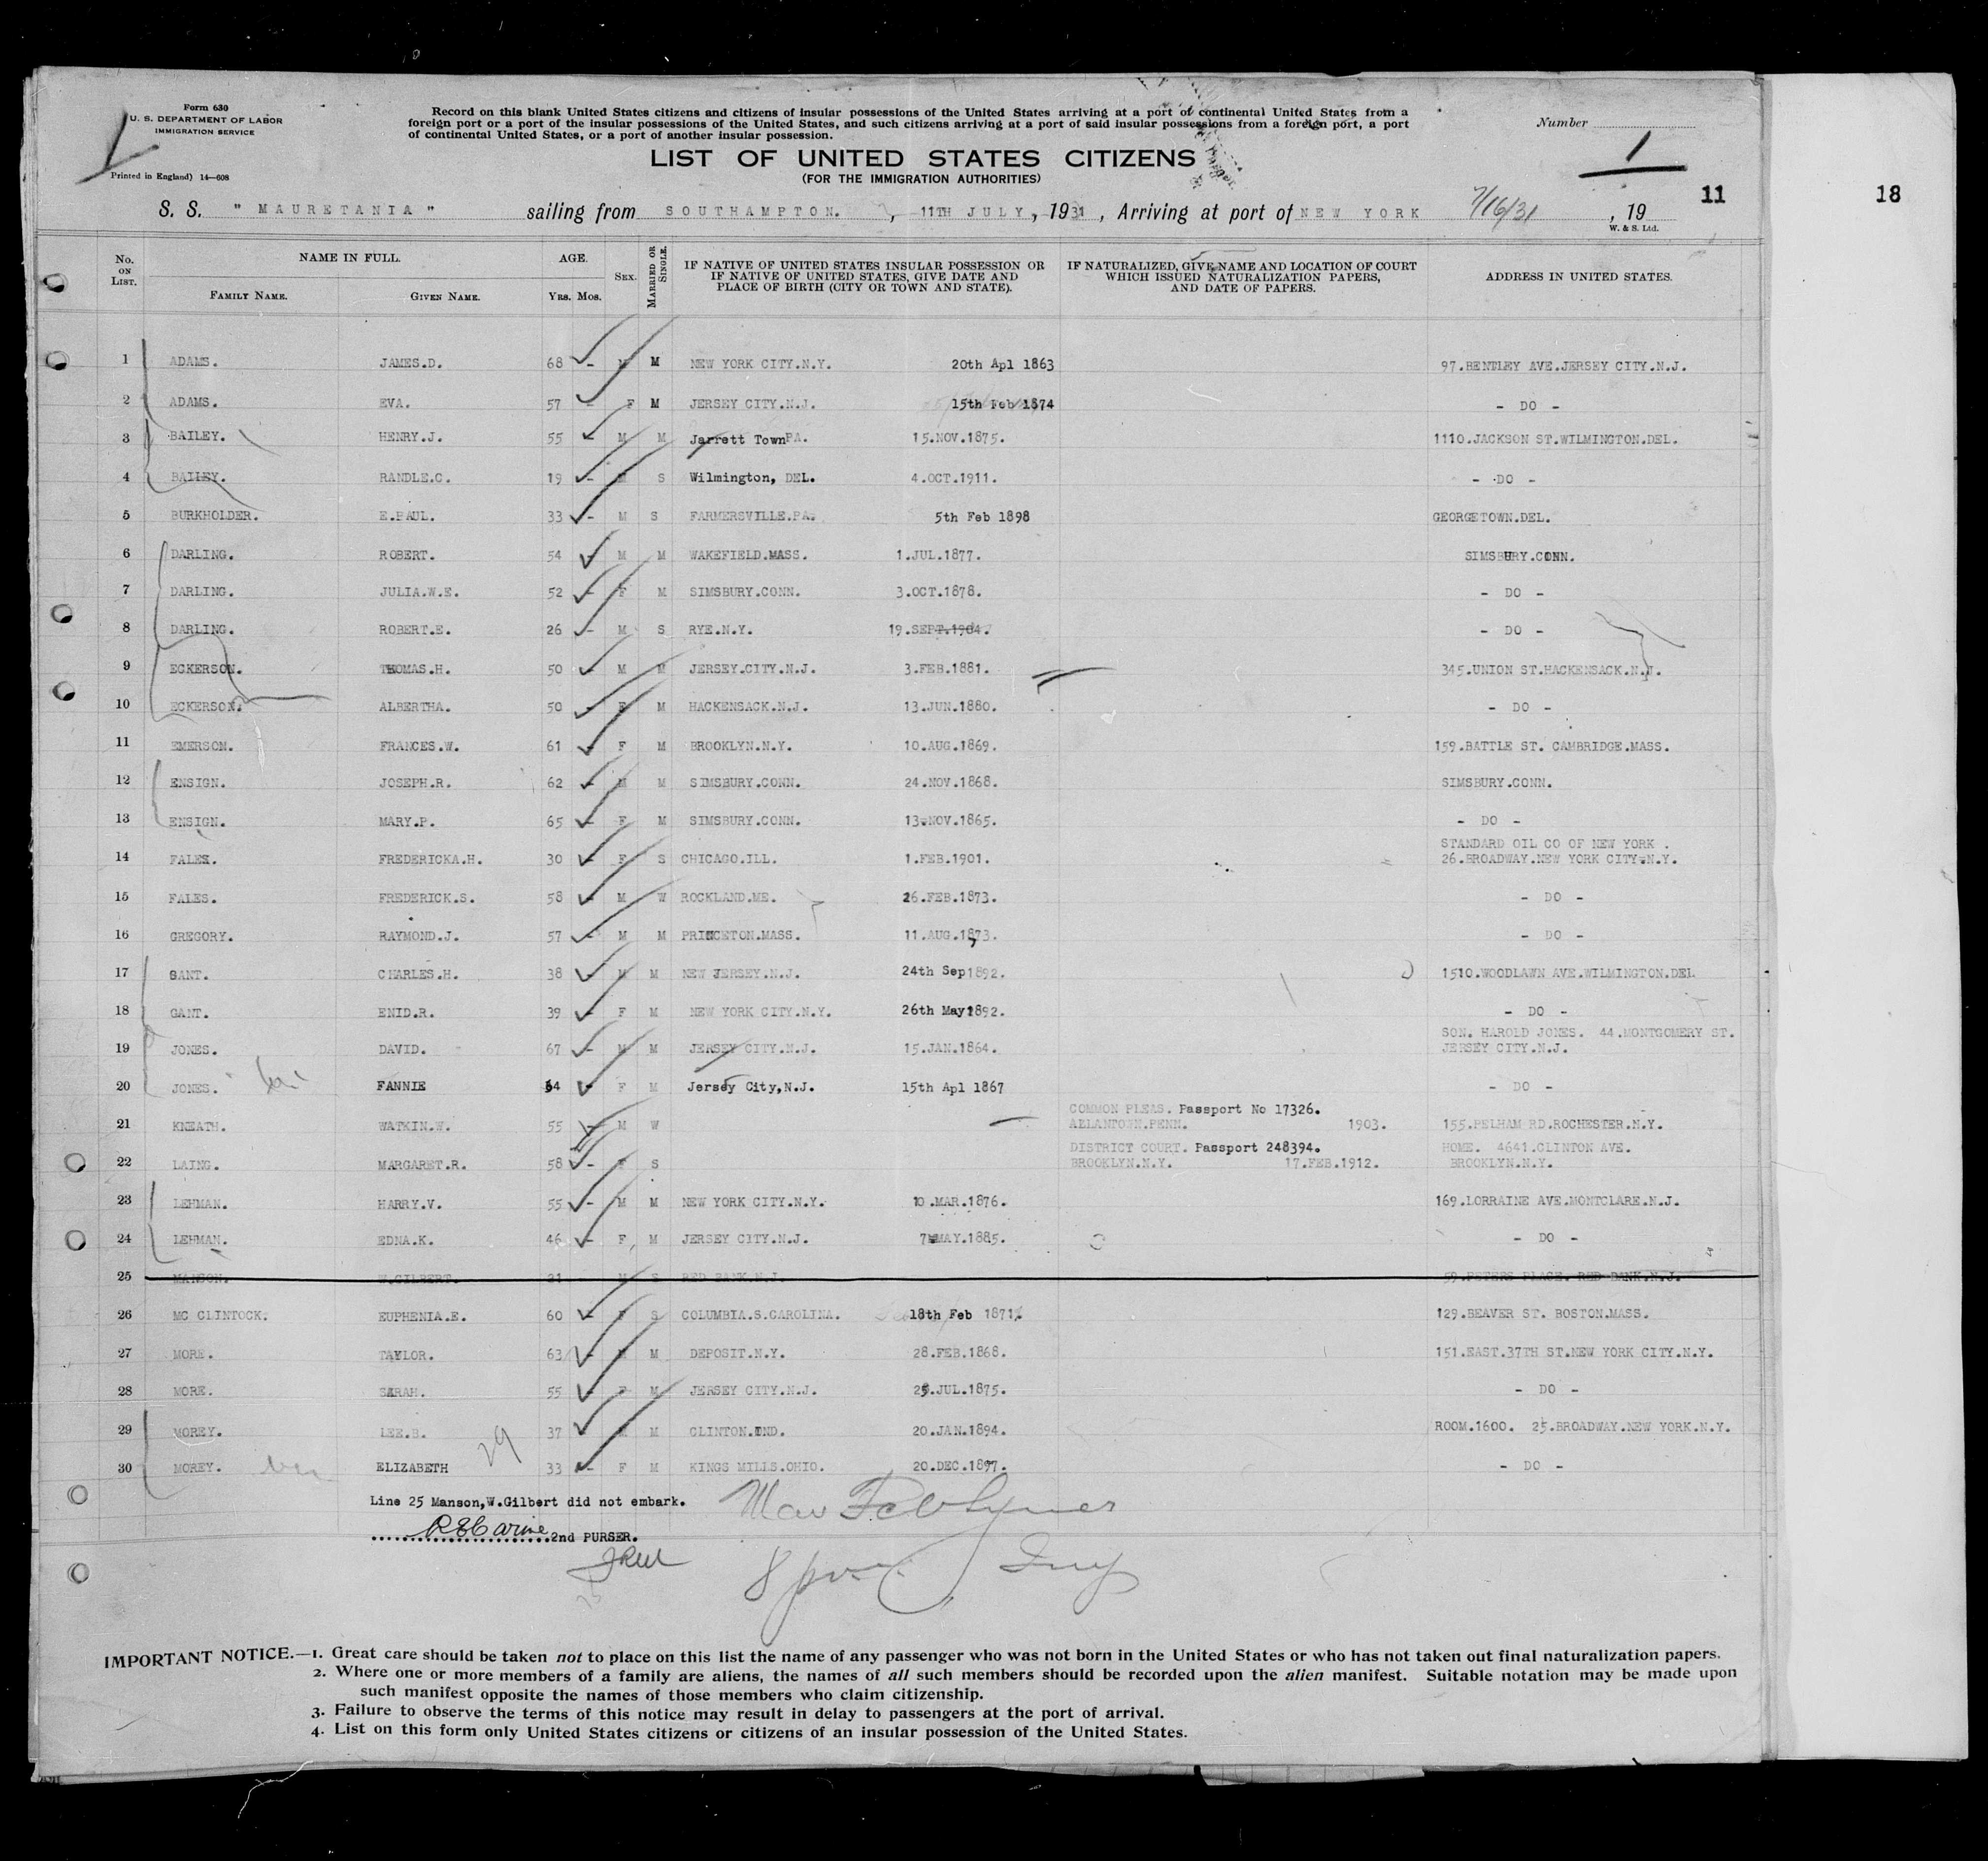 Form 630
U. S. DEPARTMENT OF LABOR
IMMIGRATION SERVICE
Printed in England) 14—608
Record on this blank United States citizens and citizens of insular possessions of the United States arriving at a port of continental United States from a
foreign port or a port of the insular possessions of the United States, and such citizens arriving at a port of said insular possessions from a foreign port, a port
of continental United States, or a port of another insular possession.
Number
1
LIST OF UNITED STATES CITIZENS
(FOR THE IMMIGRATION AUTHORITIES)
11
18
S. S. " MAURETANIA " sailing from SOUTHAMPTON. , 11TH JULY, 1931 , Arriving at port of NEW YORK 7/16/31 , 19
W. & S. Ltd.
No. ON LIST. NAME IN FULL. FAMILY NAME. GIVEN NAME. AGE. YRS. MOS. SEX. MARRIED OR SINGLE. IF NATIVE OF UNITED STATES INSULAR POSSESSION OR IF NATIVE OF UNITED STATES, GIVE DATE AND PLACE OF BIRTH (CITY OR TOWN AND STATE). IF NATURALIZED, GIVE NAME AND LOCATION OF COURT WHICH ISSUED NATURALIZATION PAPERS, AND DATE OF PAPERS. ADDRESS IN UNITED STATES.
1 ADAMS. JAMES.D. 68 - M M NEW YORK CITY.N.Y. 20th Apl 1863 97.BENTLEY AVE.JERSEY CITY.N.J.
2 ADAMS. EVA. 57 - F M JERSEY CITY.N.J. 15th Feb 1874 - DO -
3 BAILEY. HENRY.J. 55 M M Jarrett Town PA. 15.NOV.1875. 1110.JACKSON ST.WILMINGTON.DEL.
4 BAILEY. RANDLE.C. 19 - M S Wilmington, DEL. 4.OCT.1911. - DO -
5 BURKHOLDER. E.PAUL. 33 - M S FARMERSVILLE.PA. 5th Feb 1898 GEORGETOWN.DEL.
6 DARLING. ROBERT. 54 - M M WAKEFIELD.MASS. 1.JUL.1877. SIMSBURY.CONN.
7 DARLING. JULIA.W.E. 52 - F M SIMSBURY.CONN. 3.OCT.1878. - DO -
8 DARLING. ROBERT.E. 26 - M S RYE.N.Y. 19.SEPT.1904. - DO -
9 ECKERSON. THOMAS.H. 50 - M M JERSEY.CITY.N.J. 3.FEB.1881. 345.UNION ST.HACKENSACK.N.J.
10 ECKERSON. ALBERTHA. 50 - F M HACKENSACK.N.J. 13.JUN.1880. - DO -
11 EMERSON. FRANCES.W. 61 - F M BROOKLYN.N.Y. 10.AUG.1869. 159.BATTLE ST. CAMBRIDGE.MASS.
12 ENSIGN. JOSEPH.R. 62 - M M SIMSBURY.CONN. 24.NOV.1868. SIMSBURY.CONN.
13 ENSIGN. MARY.P. 65 - F M SIMSBURY.CONN. 13.NOV.1865. - DO -
14 FALES. FREDERICKA.H. 30 - F S CHICAGO.ILL. 1.FEB.1901. STANDARD OIL CO OF NEW YORK . 26.BROADWAY.NEW YORK CITY.N.Y.
15 FALES. FREDERICK.S. 58 - M W ROCKLAND.ME. 26.FEB.1873. - DO -
16 GREGORY. RAYMOND.J. 57 - M M PRINCETON.MASS. 11.AUG.1873. - DO -
17 GANT. CHARLES.H. 38 - M M NEW JERSEY.N.J. 24th Sep 1892. 1510.WOODLAWN AVE.WILMINGTON.DEL
18 GANT. ENID.R. 39 - F M NEW YORK CITY.N.Y. 26th May 1892. - DO -
19 JONES. DAVID. 67 - M M JERSEY CITY.N.J. 15.JAN.1864. SON. HAROLD JONES. 44.MONTGOMERY ST. JERSEY CITY.N.J.
20 JONES. FANNIE 64 - F M Jersey City,N.J. 15th Apl 1867 - DO -
21 KNEATH. WATKIN.W. 55 - M W COMMON PLEAS. Passport No 17326. ALLANTOWN.PENN. 1903. 155.PELHAM RD.ROCHESTER.N.Y.
22 LAING. MARGARET.R. 58 - F S DISTRICT COURT. Passport 248394. BROOKLYN.N.Y. 17.FEB.1912. HOME. 4641.CLINTON AVE. BROOKLYN.N.Y.
23 LEHMAN. HARRY.V. 55 - M M NEW YORK CITY.N.Y. 10.MAR.1876. 169.LORRAINE AVE.MONTCLARE.N.J.
24 LEHMAN. EDNA.K. 46 - F M JERSEY CITY.N.J. 7.MAY.1885. - DO -
25 MANSON. W.GILBERT. 21 M S RED BANK.N.J. 59.PETERS PLACE. RED BANK.N.J.
26 MC CLINTOCK. EUPHENIA.E. 60 - F S COLUMBIA.S.CAROLINA. 18th Feb 1871. 129.BEAVER ST. BOSTON.MASS.
27 MORE. TAYLOR. 63 - M M DEPOSIT.N.Y. 28.FEB.1868. 151.EAST.37TH ST.NEW YORK CITY.N.Y.
28 MORE. SARAH. 55 - F M JERSEY CITY.N.J. 25.JUL.1875. - DO -
29 MOREY. LEE.B. 37 M M CLINTON.IND. 20.JAN.1894. ROOM.1600. 25.BROADWAY.NEW YORK.N.Y.
30 MOREY. ELIZABETH 29 33 - F M KINGS MILLS.OHIO. 20.DEC.1897. - DO -
Line 25 Manson,W.Gilbert did not embark.
2nd PURSER.
IMPORTANT NOTICE.—1. Great care should be taken not to place on this list the name of any passenger who was not born in the United States or who has not taken out final naturalization papers.
2. Where one or more members of a family are aliens, the names of all such members should be recorded upon the alien manifest. Suitable notation may be made upon
such manifest opposite the names of those members who claim citizenship.
3. Failure to observe the terms of this notice may result in delay to passengers at the port of arrival.
4. List on this form only United States citizens or citizens of an insular possession of the United States.